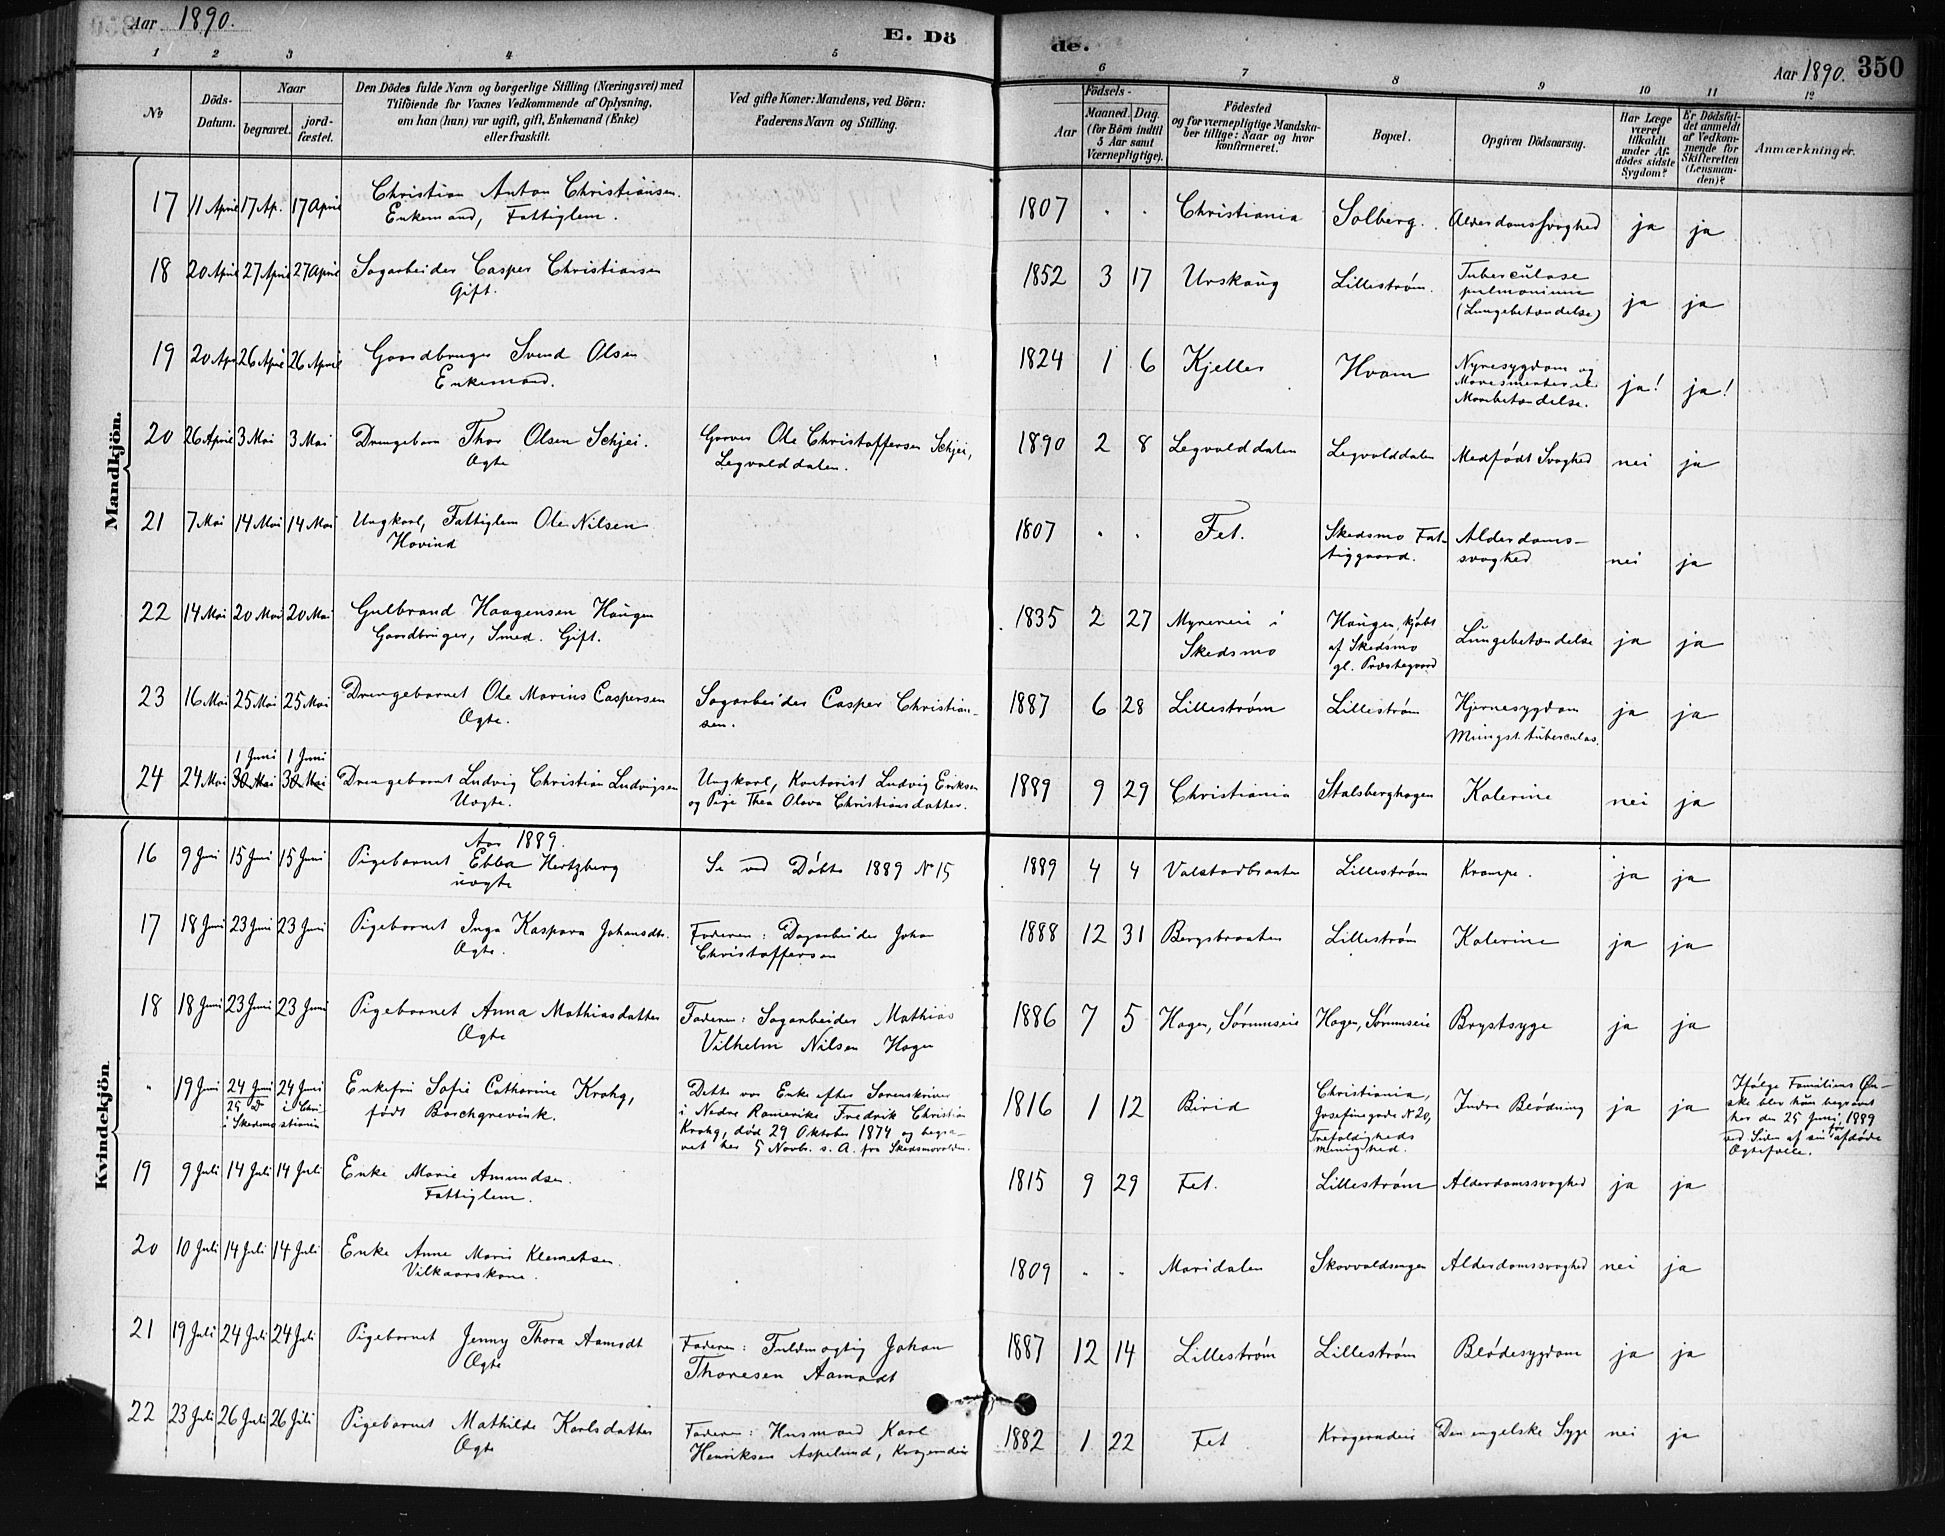 Aar 1890.
E. Dö
de.
Aar 1890. 350
1 2 3 4 5 6 7 8 9 10 11 12
No
Döds-
Datum.
Naar
begravet.
jord-
fæstet.
Den Dödes fulde Navn og borgerlige Stilling (Næringsvei) med
Tilföiende for Voxnes Vedkommende af Oplysning,
om han (hun) var ugift, gift, Enkemand (Enke)
eller fraskilt.
Ved gifte Koner: Mandens, ved Börn:
Faderens Navn og Stilling.
Födsels-
Aar
Maaned. Dag.
(for Börn indtil
5 Aar samt
Værnepligtige).
Födested
og for værnepligtige Mandska-
ber tillige: Naar og hvor
konfirmeret.
Bopæl.
Opgiven Dödsaarsag.
Har Læge
været
tilkaldt
under Af-
dödes sidste
Sygdom?
Er Dödsfal-
det anmeldt
af Vedkom-
mende for
Skifteretten
(Lensman-
den)?
Anmærkninger.
Mandkjön.
17 11 April 17 Ap. 17 April Christian Anton Christiansen.
Enkemand, Fattiglem.
1807 " " Christiania Solberg. Alderdomssvaghed ja ja
18 20 April 27 April 27 April Sagarbeider Casper Christiansen
Gift.
1852 3 17 Urskaug Lillestrøm. Tuberculose
pulmonium
(Lungebetændelse) ja ja
19 20 Apr 26 April 26 April Gaardbruger Svend Olsen
Enkemand.
1824 1 6 Kjeller Hvam Nyresygdom og
Mavesmerter el.
Mavebetændelse. ja! ja!
20 26 April 3 Mai 3 Mai Drengebarn Thor Olsen Schjei.
Ægte
Garver Ole Christoffersen Schjei,
Legvolddalen.
1890 2 8 Legvolddalen Legvolddalen Medfødt Svaghed nei ja
21 7 Mai 14 Mai 14 Mai Ungkarl, Fattiglem Ole Nilsen
Hovind
1807 " " Fet. Skedsmo Fat-
tiggaard. Alderdoms-
svaghed nei ja
22 14 Mai 20 Mai 20 Mai Gulbrand Haagensen Haugen
Gaardbruger, Smed. Gift.
1835 2 27 Myreneie i
Skedsmo
Haugen, kjøbt
af Skedsmo
gl. Præstegaard
Lungebetændelse ja ja
23 16 Mai 25 Mai 25 Mai Drengebarnet Ole Marius Caspersen
Ægte.
Sagarbeider Casper Christian-
sen.
1887 6 28 Lillestrøm Lillestrøm Hjernesygdom
ja ja
1 Juni 1 Juni
24 24 Mai 30 Mai 30 Mai Drengebarnet Ludvig Christian Ludvigsen
Uægte.
Ungkarl, Kontorist Ludvig Eriksen
og Pige Thea Olava Christiansdatter.
1889 9 29 Christiania Stalsberghagen Kolerine nei ja
Kvindekjön
Aar 1889.
16 9 Juni 15 Juni 15 Juni Pigebarnet Ebba Hertzberg
uægte
Se ved Døbte 1889 N 15
1889 4 4 Valstadbraaten Lillestrøm Krampe. ja ja
17 18 Juni 23 Juni 23 Juni Pigebarnet Inga Kaspara Johansdtr.
Ægte.
Faderen: Dagarbeider Johan
Christoffersen
1888 12 31 Bergsbraaten Lillestrøm Kolerine ja ja
18 18 Juni 23 Juni 23 Juni Pigebarnet Anna Mathiasdatter
Ægte
Faderen: Sagarbeider Mathias
Vilhelm Nilsen Hagen
1886 7 5 Hagen, Sørumseie Hagen, Sørumseie Brystsyge ja ja
" 19 Juni 24 Juni
25 D
i Skedsmo
24 Juni
i Chri-
stiania
Enkefru Sofie Catharine Krohg,
født Borchgrevink.
Dette var Enke efter Sorenskriver
i Nedre Romerike Fredrik Christian
Krohg, død 29 Oktober 1874 og begra-
vet her 5 Novbr. s. A. fra Skedsmovolden.
1816 1 12 Birid
Christiania,
Josefinegade N 20,
Trefoldigheds
menighed.
Indre Blødning ja ja
Ifølge Familiens Øn-
ske blev hun begravet
her den 25 Juni 1889
ved Siden af sin før afdøde
Ægtefælle.
19 9 Juli 14 Juli 14 Juli Enke Marie Amundsen.
Fattiglem.
1815 9 29 Fet. Lillestrøm Alderdomssvaghed ja ja
20 10 Juli 14 Juli 14 Juli Enke Anne Marie Klemetsen.
Vilkaarskone.
1809 " " Maridalen Skovvoldsengen Alderdomssvaghed nei ja
21 19 Juli 24 Juli 24 Juli Pigebarnet Jenny Thora Aamodt
Ægte
Faderen: Fuldmægtig Johan
Thoresen Aamodt
1887 12 14 Lillestrøm Lillestrøm Blødesygdom ja ja
22 23 Juli 26 Juli 26 Juli Pigebarnet Mathilde Karlsdatter
Ægte
Faderen: Husmand Karl
Henriksen Aspelund,
1882 1 22 Fet Den engelske Syge nei ja